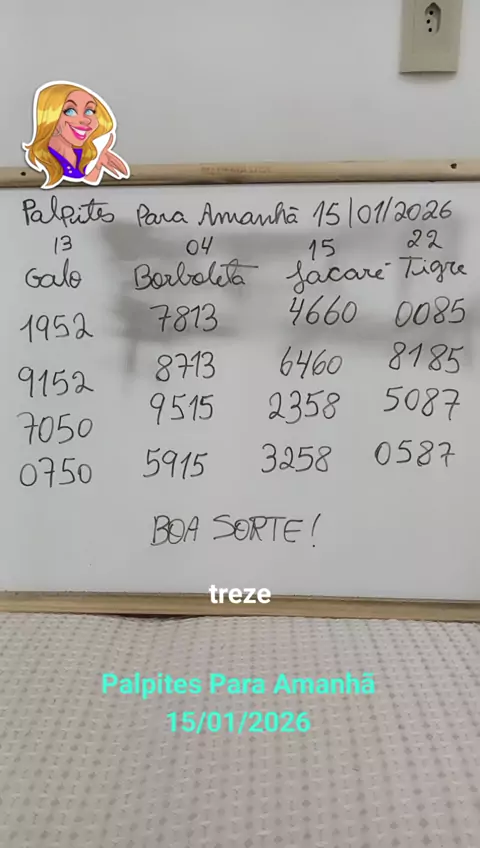 Palpites Para Amanhã 15/01/2026
13 04 15 22
Galo Borboleta Jacaré Tigre
1952 7813 4660 0085
9152 8713 6460 8185
7050 9515 2358 5087
0750 5915 3258 0587
BOA SORTE!
treze
Palpites Para Amanhã
15/01/2026